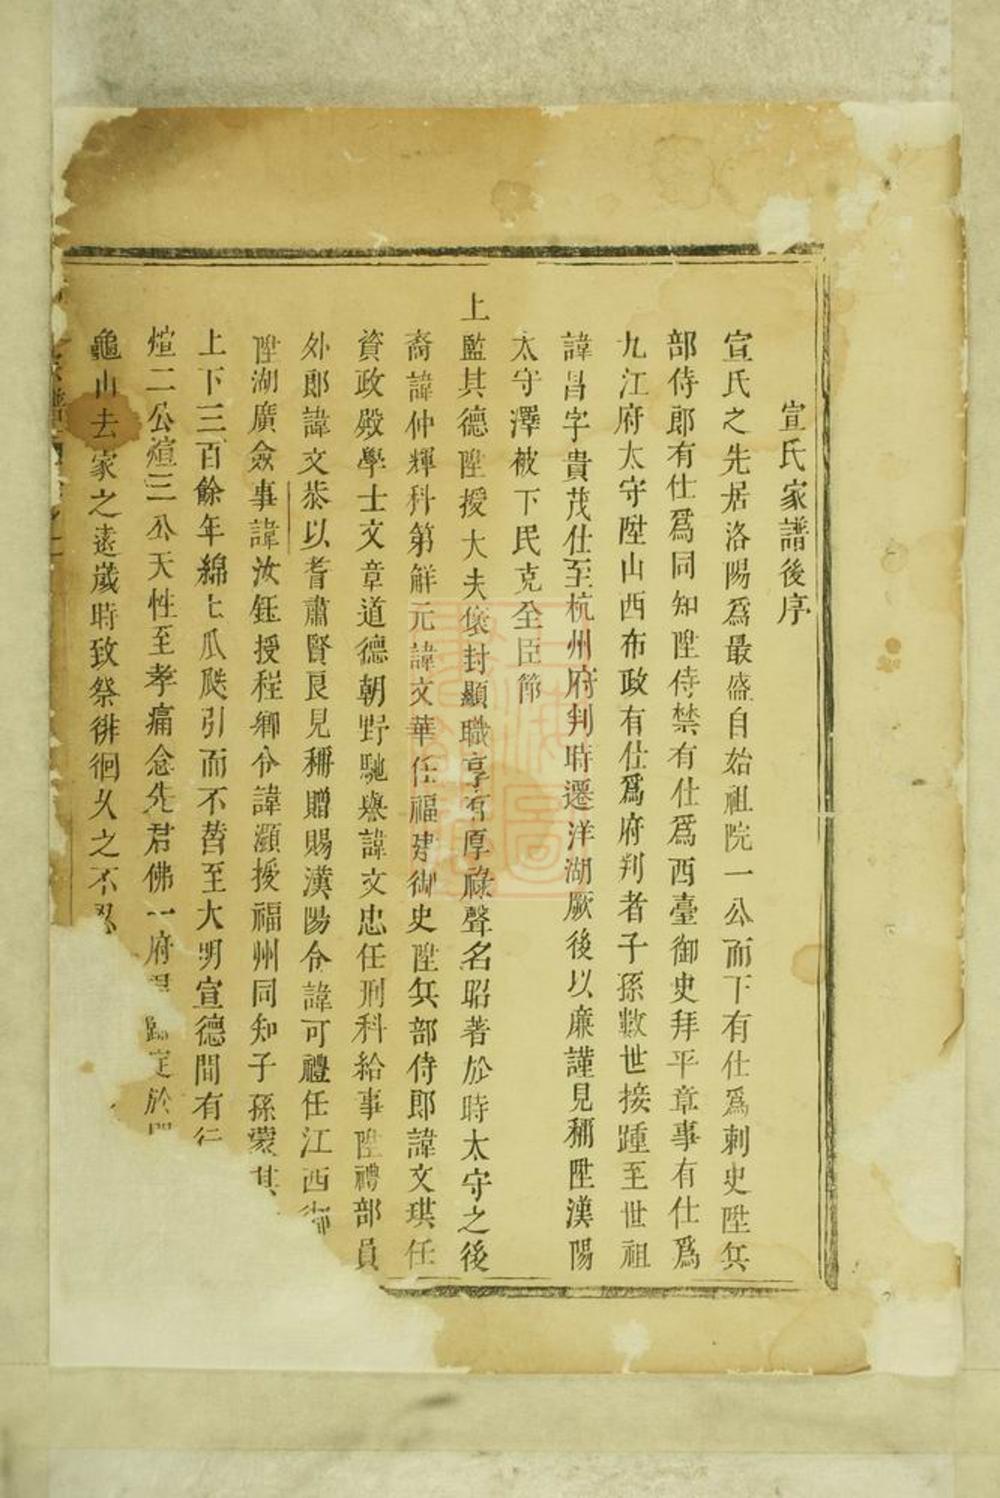 宣氏家譜後序
宣氏之先居洛陽爲最盛自始祖院一公而下有仕爲刺史陞兵
部侍郎有仕爲同知陞侍禁有仕爲西臺御史拜平章事有仕爲
九江府太守陞山西布政有仕爲府判者子孫數世接踵至世祖
諱昌字貴茂仕至杭州府判時遷洋湖厥後以廉謹見稱陞漢陽
太守澤被下民克全臣節
上監其德陞授大夫褒封顯職享有厚祿聲名昭著於時太守之後
裔諱仲輝科第解元諱文華任福建御史陞兵部侍郎諱文琪任
資政殿學士文章道德朝野馳譽諱文忠任刑科給事陞禮部員
外郎諱文恭以耆肅賢良見稱贈賜漢陽令諱可禮任江西
陞湖廣僉事諱汝鈺授程鄉令諱灝授福州同知子孫蒙其
上下三百餘年綿七瓜瓞引而不替至大明宣德間有行
煊二公煊三公天性至孝痛念先君佛一府 定於
龜山去家之遠歲時致祭徘徊久之不忍